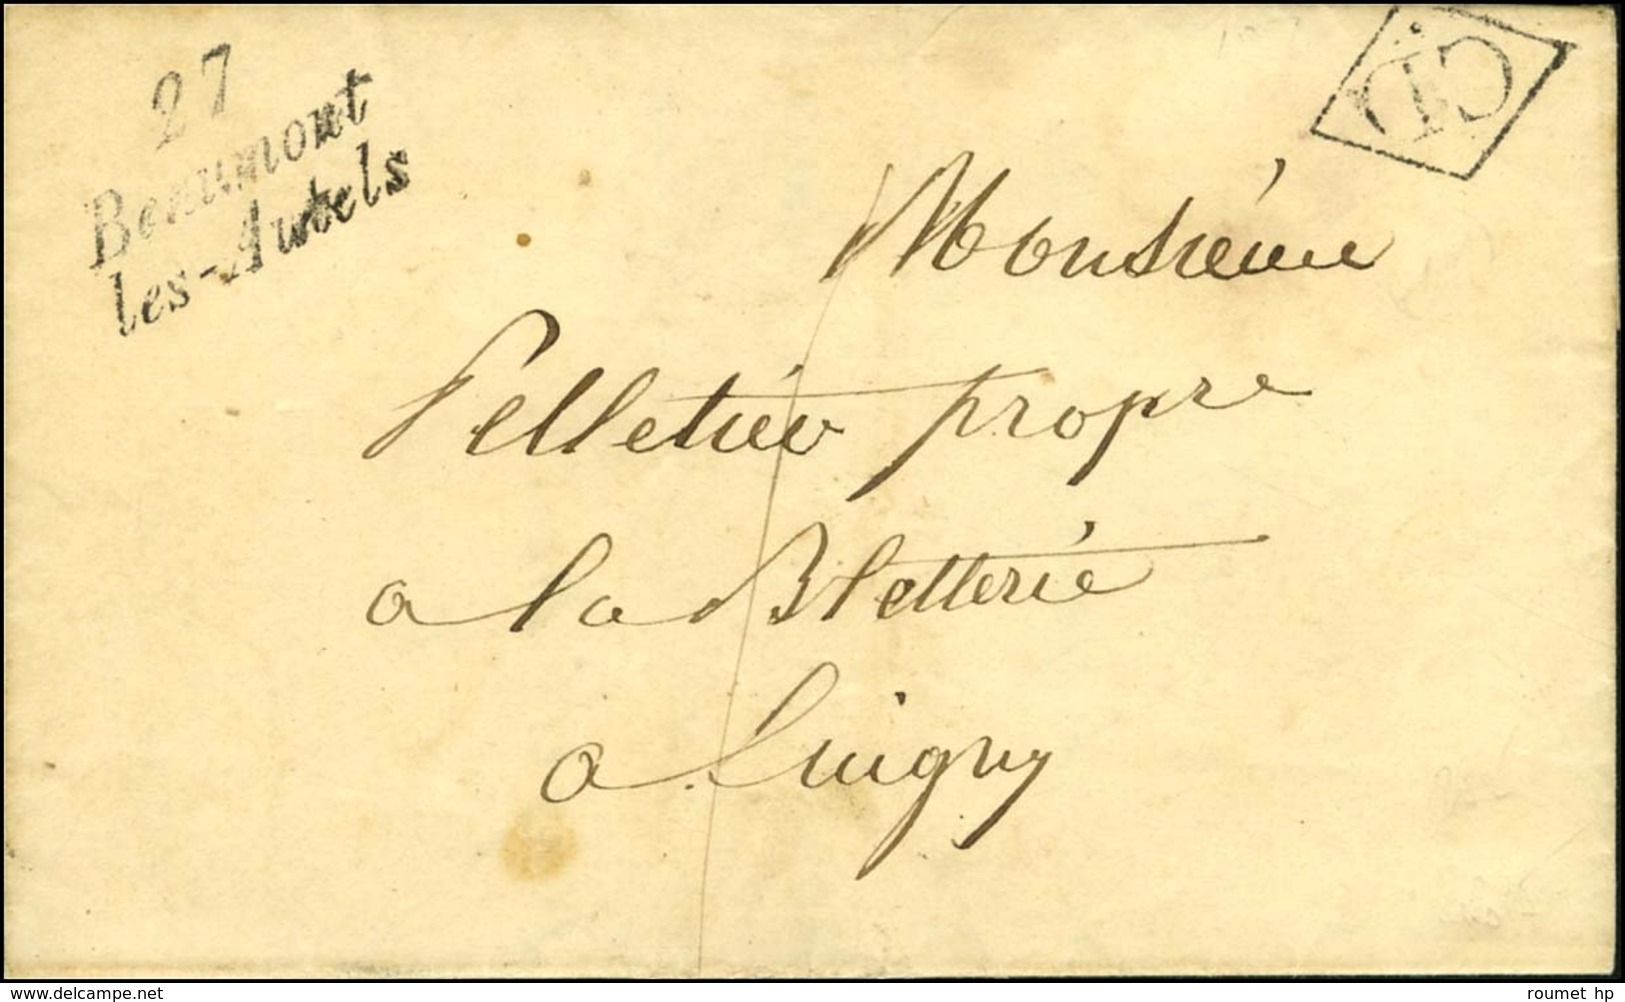 27
Beaumont
les-Autels
CD
Monsieur
Pelletier propre
a la Bletterie
a Luigny
roumet hp